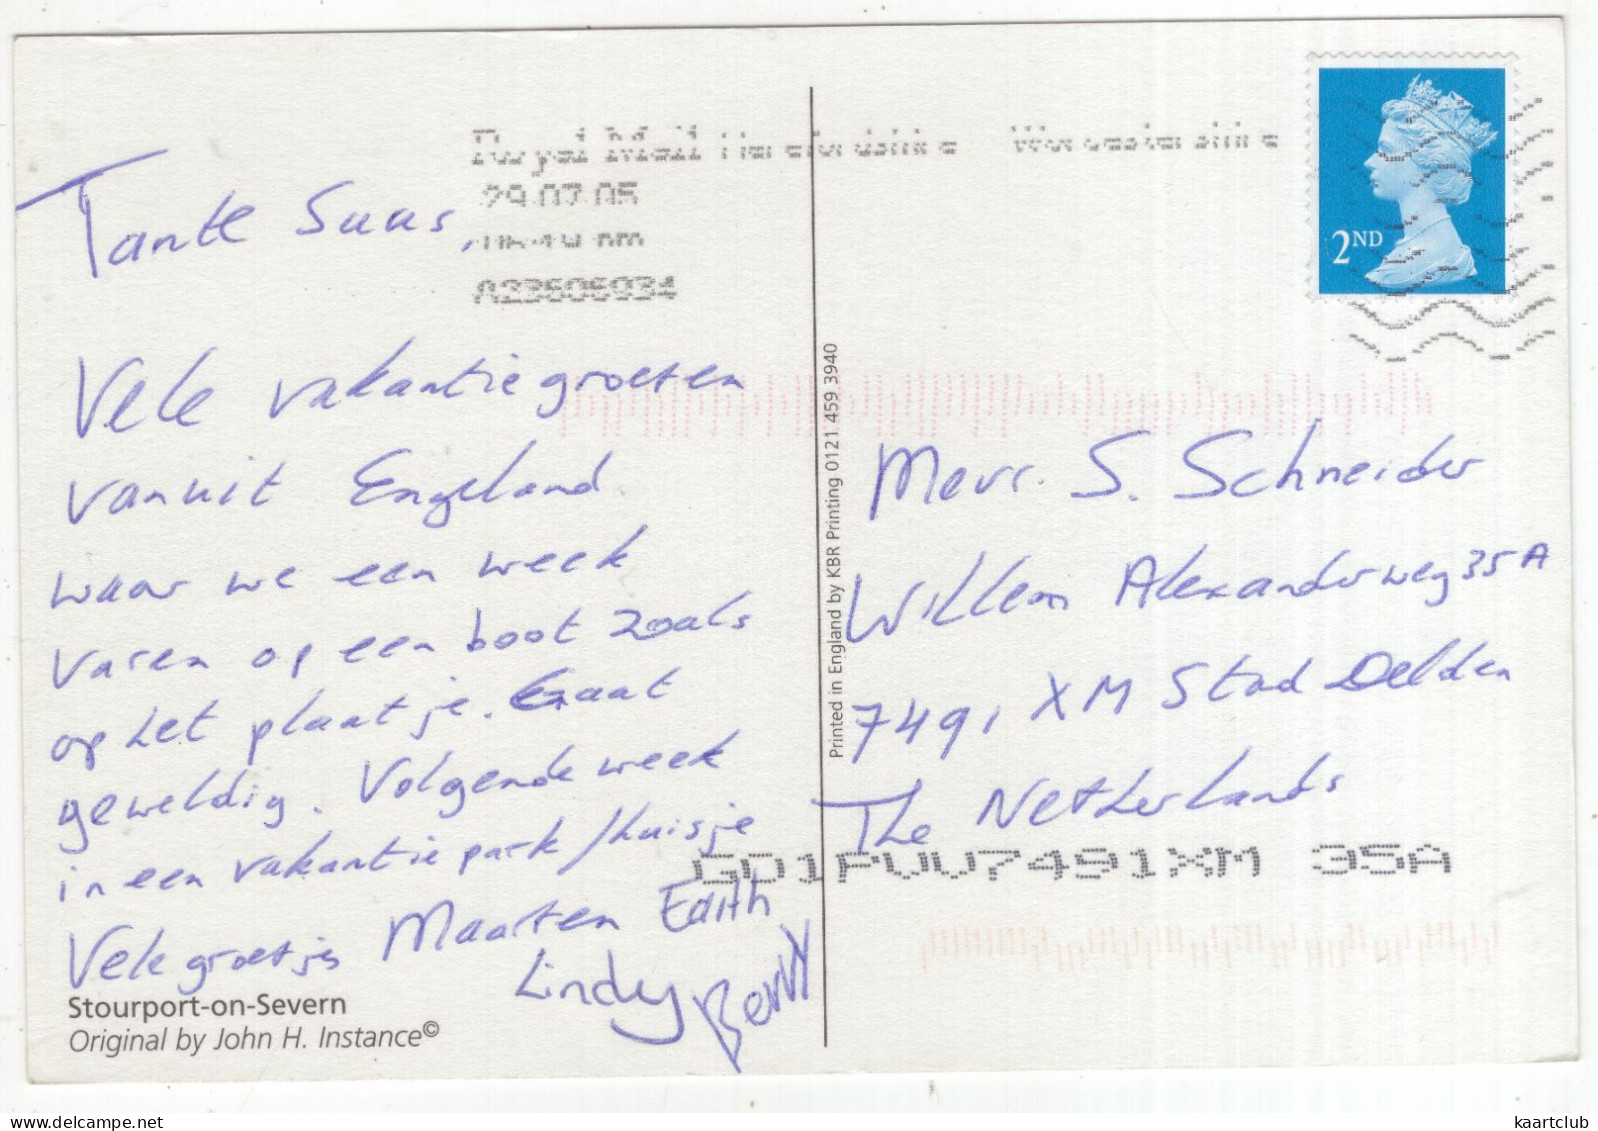 Royal Mail Herefordshire Worcestershire
29.07.05
A23606934
2ND
Tante Suus,
Vele vakantiegroeten
vanuit Engeland
waar we een week
varen op een boot zoals
op het plaatje. Gaat
geweldig. Volgende week
in een vakantiepark/huisje
Vele groetjes Maarten Edith
Lindy
Stourport-on-Severn
Original by John H. Instance©
Printed in England by KBR Printing 0121 459 3940
Mevr. S. Schneider
Willem Alexanderweg 35A
7491 XM Stad Delden
The Netherlands
GD1PUU7491XM 35A
kaartclub